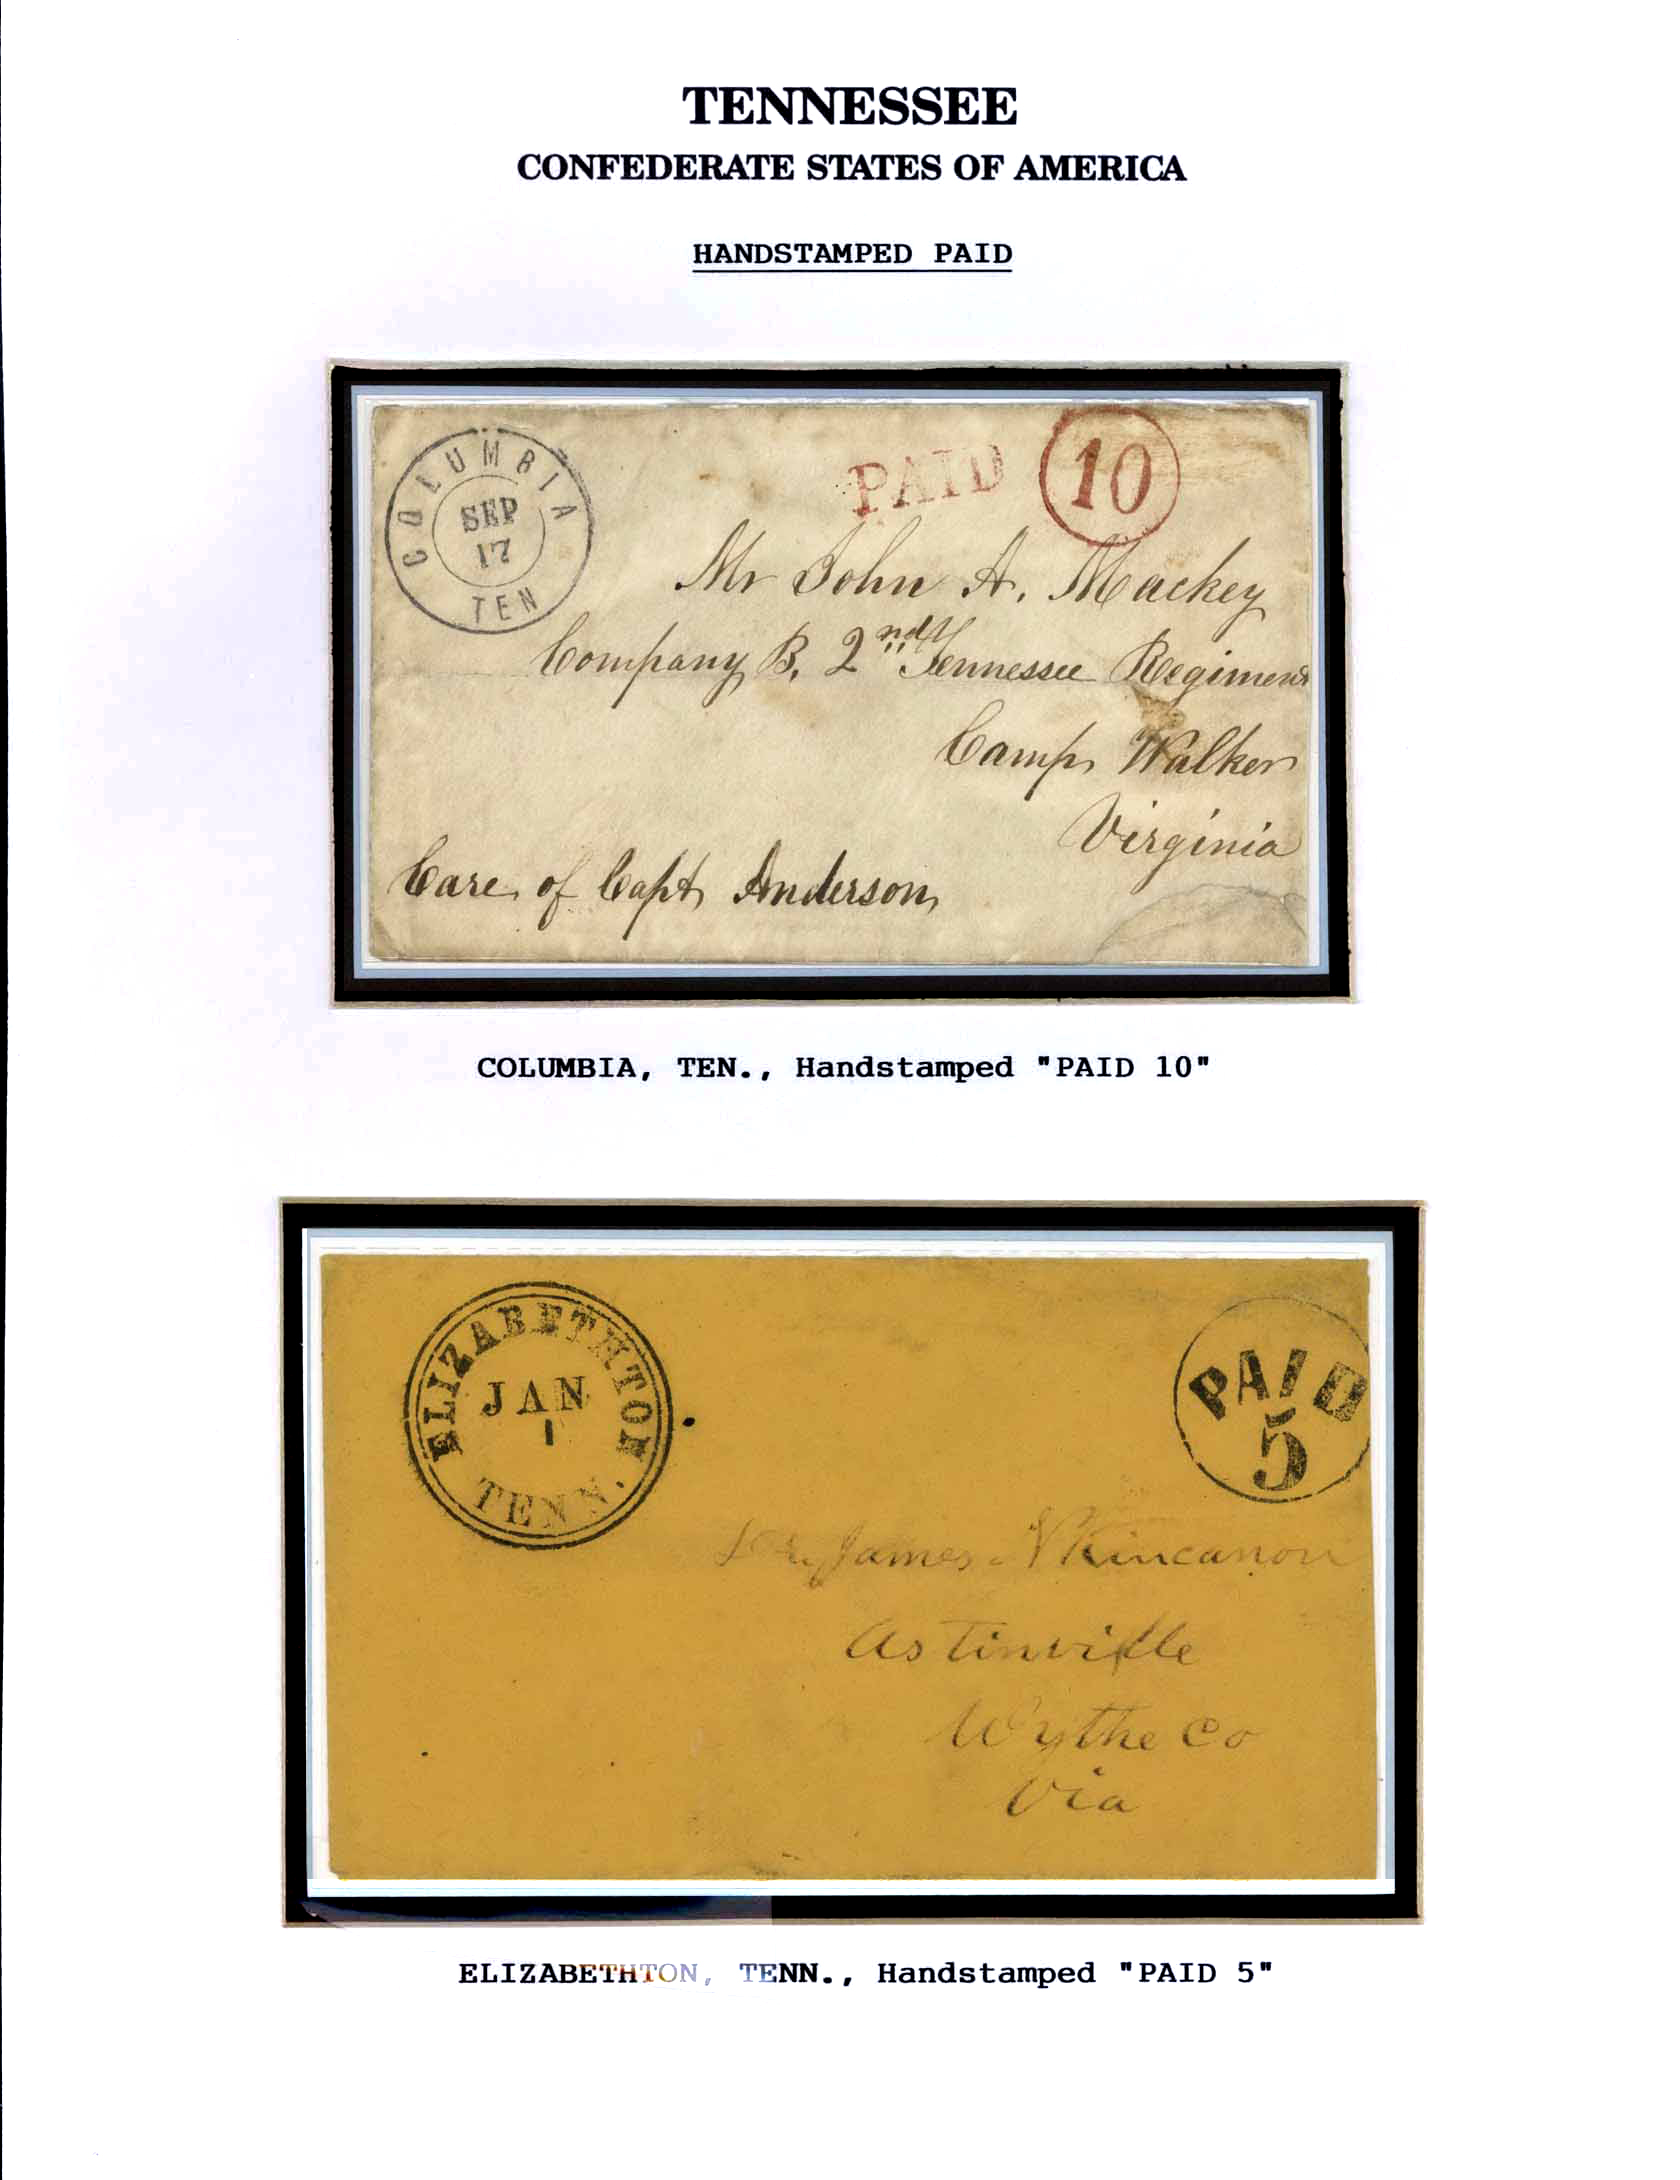 TENNESSEE
CONFEDERATE STATES OF AMERICA
HANDSTAMPED PAID
COLUMBIA
SEP
17
TEN
PAID 10
Mr John A. Mackey
Company B, 2nd Tennessee Regiment
Camp Walker
Virginia
Care of Capt Anderson
COLUMBIA, TEN., Handstamped "PAID 10"
ELIZABETHTON
JAN
1
TENN.
PAID
5
James Kincanon
Astinville
Wythe Co
Via
ELIZABETHTON, TENN., Handstamped "PAID 5"